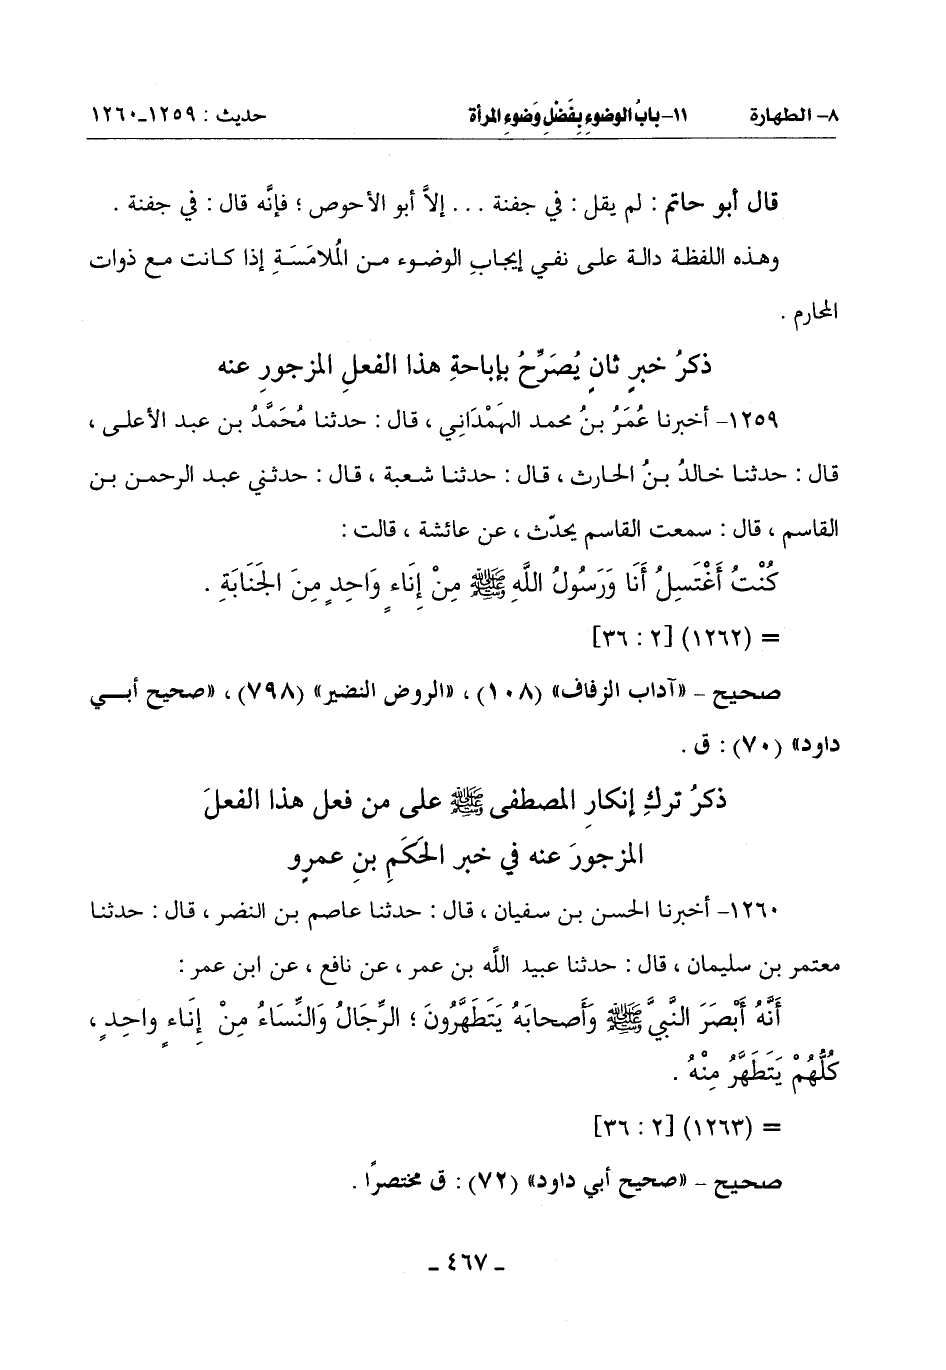 ٨- الطهارة ١١- بابُ الوضوءِ بِفَضْلِ وَضوءِ المرأة حديث : ١٢٥٩-١٢٦٠
قال أبو حاتم : لم يقل : في جفنة ... إلاَّ أبو الأحوص ؛ فإنَّه قال : في جفنة .
وهذه اللفظة دالة على نفي إيجابِ الوضوء من المُلامَسَةِ إذا كانت مع ذوات
المحارم .
ذكرُ خبرٍ ثانٍ يُصَرِّحُ بإباحةِ هذا الفعلِ المزجورِ عنه
١٢٥٩- أخبرنا عُمَرُ بنُ محمد الهَمْدَانِي ، قال : حدثنا مُحَمَّدُ بن عبد الأعلى ،
قال : حدثنا خالدُ بنُ الحارث ، قال : حدثنا شعبة ، قال : حدثني عبد الرحمن بن
القاسم ، قال : سمعت القاسم يحدّث ، عن عائشة ، قالت :
كُنْتُ أَغْتَسِلُ أَنَا وَرَسُولُ اللَّهِ ﷺ مِنْ إِنَاءٍ وَاحِدٍ مِنَ الجَنَابَةِ .
= (١٢٦٢) [٢ : ٣٦]
صحيح - «آداب الزفاف» (١٠٨) ، «الروض النضير» (٧٩٨) ، «صحيح أبي
داود» (٧٠) : ق .
ذكرُ تركِ إنكارِ المصطفى ﷺ على من فعل هذا الفعلَ
المزجورَ عنه في خبر الحَكَمِ بنِ عمرٍو
١٢٦٠- أخبرنا الحسن بن سفيان ، قال : حدثنا عاصم بن النضر ، قال : حدثنا
معتمر بن سليمان ، قال : حدثنا عبيد اللَّه بن عمر ، عن نافع ، عن ابن عمر :
أَنَّهُ أَبْصَرَ النَّبيَّ ﷺ وَأَصحابَهُ يَتَطَهَّرُونَ ؛ الرِّجَالُ وَالنِّسَاءُ مِنْ إِنَاءٍ واحِدٍ ،
كُلُّهُمْ يَتَطَهَّرُ مِنْهُ .
= (١٢٦٣) [٢ : ٣٦]
صحيح - «صحيح أبي داود» (٧٢) : ق مختصرًا .
- ٤٦٧ -